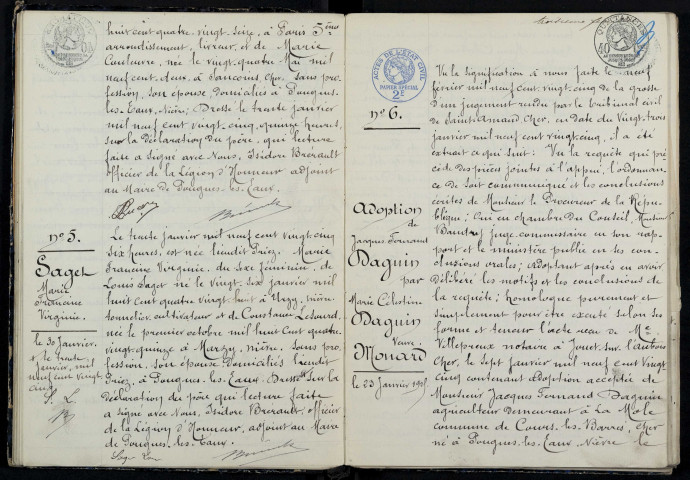 huit cent quatre vingt seize, à Paris 5ème
arrondissement, livreur, et de Marie
Couleuvre, née le vingt quatre Mai mil
neuf cent deux, à Sancoins, Cher, sans pro-
fession, son épouse, domiciliés à Pougues-
les-Eaux, Nièvre; Dressé le trente janvier
mil neuf cent vingt-cinq, quinze heures,
sur la déclaration du père, qui lecture
faite a signé avec Nous, Isidore Brérault
officier de la Légion d'Honneur adjoint
au Maire de Pougues-les-Eaux.
No 5.
Saget
Marie
Francine
Virginie.
le 30 Janvier.
Le trente janvier mil neuf cent vingt-cinq
six heures, est née lieudit Priez, Marie
Francine Virginie, du sexe féminin, de
Louis Saget né le vingt six janvier mil
huit cent quatre vingt huit à Urzy, Nièvre
cultivateur et de Constance Lesourd,
née le premier octobre mil huit cent quatre
vingt-quinze à Marzy, Nièvre, sans pro-
fession, son épouse, domiciliés lieudit
Priez, à Pougues-les-Eaux. Dressé sur la
déclaration du père qui lecture faite
a signé avec Nous, Isidore Brérault, officier
de la Légion d'Honneur, adjoint au Maire
de Pougues-les-Eaux.
ACTES DE L'ETAT CIVIL
PAPIER SPÉCIAL
2F
No 6.
Adoption
de
Jacques Fernand
Daguin
par
Marie Célestine
Daguin
veuve
Monard
le 23 Janvier 1925
Vu la signification à nous faite le neuf
février mil neuf cent vingt-cinq de la grosse
d'un jugement rendu par le tribunal civil
de Saint-Amand Cher, en date du vingt trois
janvier mil neuf cent vingt-cinq, il a été
extrait ce qui suit: Vu la requête qui pré
cède, les pièces jointes à l'appui, l'ordonnan-
ce de soit communiqué et les conclusions
écrites de Monsieur le Procureur de la Répu-
blique; Ouï en chambre du Conseil, Monsieur
Baudry juge commissaire en son rap-
port et le ministère public en ses con-
clusions orales; adoptant après en avoir
délibéré les motifs et les conclusions de
la requête; homologue purement et
simplement pour être exécuté selon ses
forme et teneur l'acte reçu de Me
Villepreux notaire à Jouet-sur-l'Aubois
Cher, le sept janvier mil neuf cent vingt
cinq contenant adoption accordée de
Monsieur Jacques Fernand Daguin
agriculteur demeurant à La Mole
commune de Cours-les-Barres, Cher
né à Pougues-les-Eaux, Nièvre le